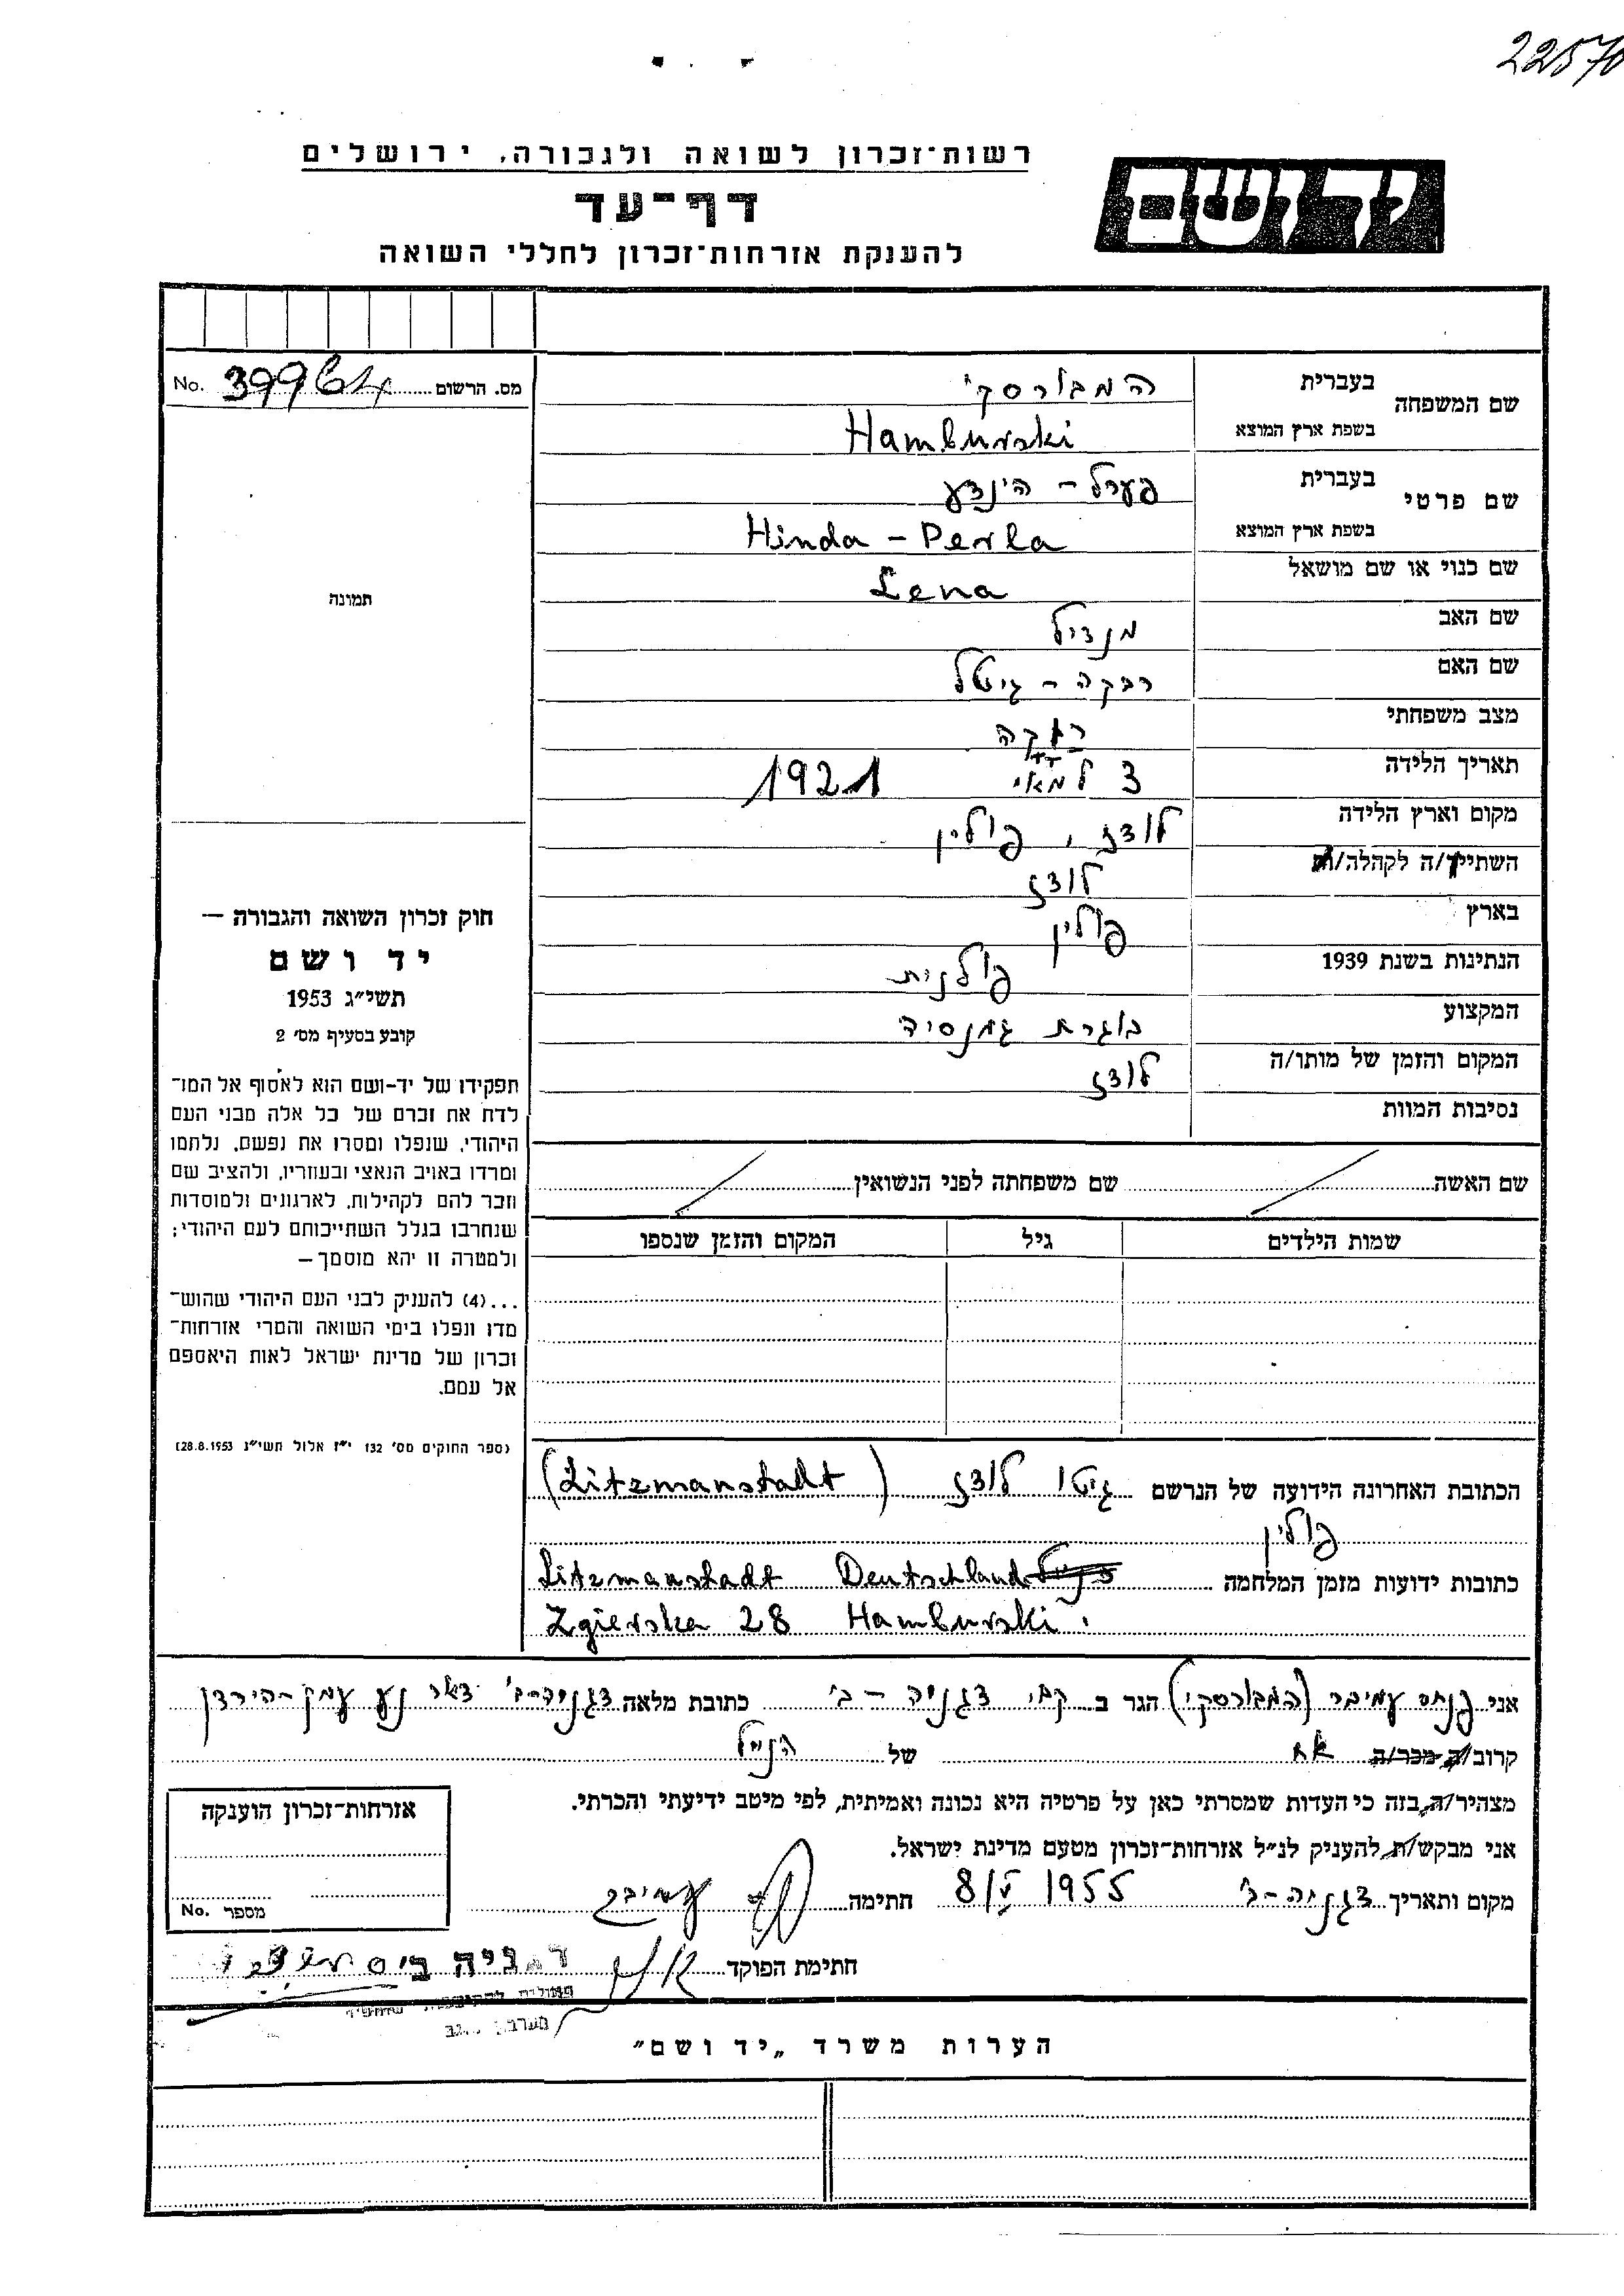 22570
רשות־זכרון לשואה ולגבורה, ירושלים
יד ושם
דף־עד
להענקת אזרחות־זכרון לחללי השואה
מס. הרשום 39964 No.
שם המשפחה בעברית המבורסקי
בשפת ארץ המוצא Hamburski
שם פרטי בעברית פערל - הינדע
בשפת ארץ המוצא Hinda - Perla
שם כנוי או שם מושאל Lena
שם האב מנדיל
שם האם רבקה - גיטל
מצב משפחתי רוקה
תאריך הלידה 3 למאי 1921
מקום וארץ הלידה לודז, פולין
השתייך/ה לקהלה/ת לודז
בארץ פולין
הנתינות בשנת 1939 פולנית
המקצוע בוגרת גמנסיה
המקום והזמן של מותו/ה לודז
נסיבות המוות
תמונה
חוק זכרון השואה והגבורה —
יד ושם
תשי״ג 1953
קובע בסעיף מס׳ 2
תפקידו של יד-ושם הוא לאסוף אל המו־
לדת את זכרם של כל אלה מבני העם
היהודי, שנפלו ומסרו את נפשם, נלחמו
ומרדו באויב הנאצי ובעוזריו, ולהציב שם
וזכר להם לקהילות, לארגונים ולמוסדות
שנחרבו בגלל השתייכותם לעם היהודי;
ולמטרה זו יהא מוסמך—
...(4) להעניק לבני העם היהודי שהוש־
מדו ונפלו בימי השואה והמרי אזרחות־
זכרון של מדינת ישראל לאות היאספם
אל עמם.
(ספר החוקים מס׳ 132 י״ז אלול תשי״ג 28.8.1953)
שם האשה שם משפחתה לפני הנשואין
שמות הילדים גיל המקום והזמן שנספו
הכתובת האחרונה הידועה של הנרשם גיטו לודז (Litzmanstadt)
פולין
כתובות ידועות מזמן המלחמה Litzmanstadt Deutschland
Zgierska 28 Hamburski
אני פנחס עמיבר (המבורסקי) הגר ב קב׳ דגניה - ב׳ כתובת מלאה דגניה-ב׳ דאר נע עמק-הירדן
קרוב/ה מכר/ה אח של הנ״ל
מצהיר/ה בזה כי העדות שמסרתי כאן על פרטיה היא נכונה ואמיתית, לפי מיטב ידיעתי והכרתי.
אני מבקש/ת להעניק לנ״ל אזרחות־זכרון מטעם מדינת ישראל.
מקום ותאריך דגניה-ב׳ 8/V 1955 חתימה עמיבר
אזרחות־זכרון הוענקה
מספר No.
חתימת הפוקד
הערות משרד „יד ושם״